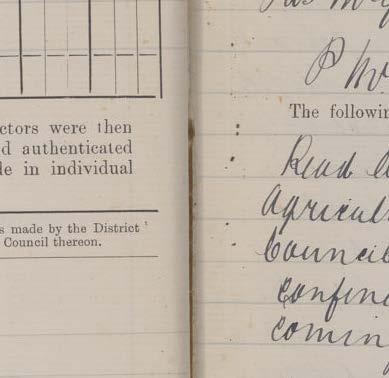 ctors were then
d authenticated
de in individual
s made by the District
Council thereon.
P
The followin
Read
Agricult
Council
Confine
Comin